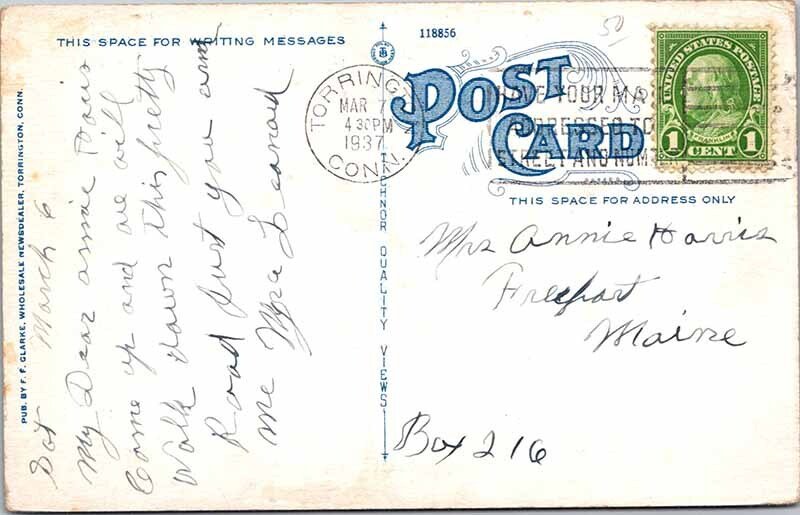 THIS SPACE FOR WRITING MESSAGES
118856
50
POST
CARD
TORRINGT
MAR 7
4 30 PM
1937
CONN.
HAVE YOUR MA
ADDRESSED TO
STREET AND NUM
UNITED STATES POSTAGE
FRANKLIN
1 CENT 1
THIS SPACE FOR ADDRESS ONLY
Mrs Annie Harris
Freeport
Maine
Box 216
Sat March 6
My Dear annie
Come up and we will
Walk down this pretty
Road Just you and
me Mrs Leonard
PUB. BY F. F. CLARKE, WHOLESALE NEWSDEALER, TORRINGTON, CONN.
TICHNOR QUALITY VIEWS